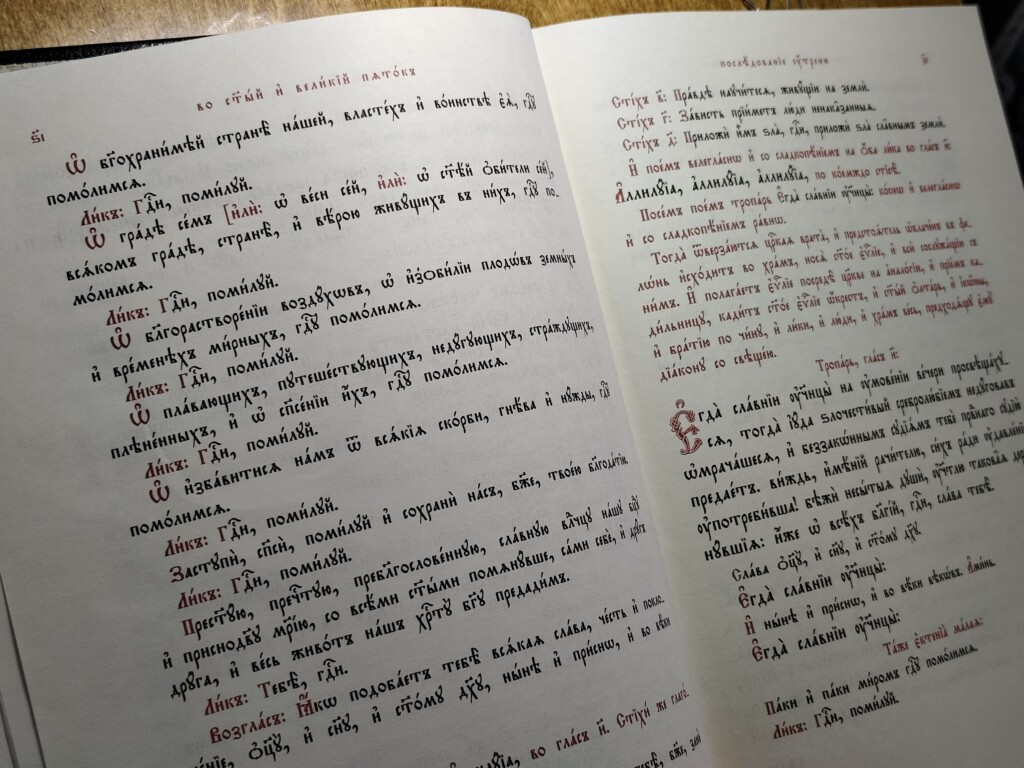 во ст҃ы́й и҆ вели́кїй пѧто́къ
Ѽ бг҃охрани́мѣй странѣ̀ на́шей, власте́хъ и҆ во́инствѣ є҆ѧ̀, гдⷭ҇ꙋ
помо́лимсѧ.
Ли́къ: Гдⷭ҇и, поми́лꙋй.
Ѽ гра́дѣ се́мъ [и҆лѝ: ѡ҆ ве́си се́й, и҆лѝ: ѡ҆ ст҃ѣ́й ѻ҆би́тели се́й],
всѧ́комъ гра́дѣ, странѣ̀, и҆ вѣ́рою живꙋ́щихъ въ ни́хъ, гдⷭ҇ꙋ по-
мо́лимсѧ.
Ли́къ: Гдⷭ҇и, поми́лꙋй.
Ѽ благорастворе́нїи воздꙋ́хѡвъ, ѡ҆ и҆з̾ѻби́лїи плодѡ́въ земны́хъ
и҆ вре́менѣхъ ми́рныхъ, гдⷭ҇ꙋ помо́лимсѧ.
Ли́къ: Гдⷭ҇и, поми́лꙋй.
Ѽ пла́вающихъ, пꙋтеше́ствꙋющихъ, недꙋ́гꙋющихъ, стра́ждꙋщихъ,
плѣне́нныхъ, и҆ ѡ҆ спⷭ҇е́нїи и҆́хъ, гдⷭ҇ꙋ помо́лимсѧ.
Ли́къ: Гдⷭ҇и, поми́лꙋй.
Ѽ и҆зба́витисѧ на́мъ ѿ всѧ́кїѧ ско́рби, гнѣ́ва и҆ нꙋ́жды, гдⷭ҇ꙋ
помо́лимсѧ.
Ли́къ: Гдⷭ҇и, поми́лꙋй.
Застꙋпѝ, сп҃сѝ, поми́лꙋй и҆ сохранѝ на́съ, бж҃е, твое́ю благода́тїю.
Ли́къ: Гдⷭ҇и, поми́лꙋй.
Прест҃ꙋ́ю, пречⷭ҇тꙋю, пребл҃гослове́ннꙋю, сла́внꙋю влⷣчцꙋ на́шꙋ бцⷣꙋ
и҆ приснодв҃ꙋ мр҃і́ю, со всѣ́ми ст҃ы́ми помѧнꙋ́вше, са́ми себѐ, и҆ дрꙋ́гъ
дрꙋ́га, и҆ ве́сь живо́тъ на́шъ хрⷭ҇тꙋ̀ бг҃ꙋ предади́мъ.
Ли́къ: Тебѣ̀, гдⷭ҇и.
Возгла́съ: Ꙗ҆́кѡ подоба́етъ тебѣ̀ всѧ́каѧ сла́ва, че́сть и҆ покло-
не́нїе, ѻ҆ц҃ꙋ̀, и҆ сн҃ꙋ, и҆ ст҃о́мꙋ дх҃ꙋ, ны́нѣ и҆ при́снѡ, и҆ во вѣ́ки
во гла́съ и҃. Стїхѝ же глаго-
тебѣ̀, бж҃е, занѐ
послѣ́дованїе ᲂу҆́трени
Сті́хъ в҃: Пра́вдѣ наꙋчи́тесѧ, живꙋ́щїи на землѝ.
Сті́хъ г҃: За́висть прїи́метъ лю́ди ненака́занныѧ.
Сті́хъ д҃: Приложѝ и҆̀мъ ѕла̀, гдⷭ҇и, приложѝ ѕла̀ сла́внымъ землѝ.
И҆ пое́мъ велегла́снѡ и҆ со сладкопѣ́нїемъ на ѻ҆́ба ли́ка во гла́съ и҃:
А҆ллилꙋ́їа, а҆ллилꙋ́їа, а҆ллилꙋ́їа, по ко́емждо стїсѣ̀.
Посе́мъ пое́мъ тропа́рь Є҆гда̀ сла́внїи ᲂу҆чн҃цы̀: ко́снѡ и҆ велегла́снѡ
и҆ со сладкопѣ́нїемъ ра́внѡ.
Тогда̀ ѿверза́ютсѧ црⷭ҇каѧ врата̀, и҆ предстоѧ́тель ѡ҆блече́нъ въ фе-
лѡ́нь и҆схо́дитъ во хра́мъ, носѧ̀ ст҃о́е є҆ѵⷢ҇лїе, и҆ всѝ сослꙋжа́щїи съ
ни́мъ. И҆ полага́етъ є҆ѵⷢ҇лїе посредѣ̀ цр҃кве на а҆нало́гїи, и҆ прїи́мъ ка-
ди́льницꙋ, кади́тъ ст҃о́е є҆ѵⷢ҇лїе ѡ҆́крестъ, и҆ ст҃ы́й ѻ҆лта́рь, и҆ і҆кѡ́ны,
и҆ бра́тїю по чи́нꙋ, и҆ ли́ки, и҆ лю́ди, и҆ хра́мъ ве́сь, предходѧ́щꙋ є҆мꙋ̀
дїа́конꙋ со свѣще́ю.
Тропа́рь, гла́съ и҃:
Є҆гда̀ сла́внїи ᲂу҆чн҃цы̀ на ᲂу҆мове́нїи ве́чери просвѣща́хꙋ-
сѧ, тогда̀ і҆ꙋ́да ѕлочести́вый сребролю́бїемъ недꙋ́говавъ
ѡ҆мрача́шесѧ, и҆ беззакѡ́ннымъ сꙋдїѧ́мъ тебѐ првⷣнаго сꙋдїю̀
предае́тъ. ви́ждь, и҆мѣ́нїй рачи́телю, си́хъ ра́ди ᲂу҆давле́нїе
ᲂу҆потреби́вша! бѣжѝ несы́тыѧ дꙋшѝ, ᲂу҆чт҃лю такова̑ѧ дерз-
нꙋ́вшїѧ: и҆́же ѡ҆ всѣ́хъ бл҃гі́й, гдⷭ҇и, сла́ва тебѣ̀.
Сла́ва ѻ҆ц҃ꙋ̀, и҆ сн҃ꙋ, и҆ ст҃о́мꙋ дх҃ꙋ.
Є҆гда̀ сла́внїи ᲂу҆чн҃цы̀:
И҆ ны́нѣ и҆ при́снѡ, и҆ во вѣ́ки вѣкѡ́въ. А҆ми́нь.
Є҆гда̀ сла́внїи ᲂу҆чн҃цы̀:
Та́же є҆ктенїа̀ ма́лаѧ:
Па́ки и҆ па́ки ми́ромъ гдⷭ҇ꙋ помо́лимсѧ.
Ли́къ: Гдⷭ҇и, поми́лꙋй.